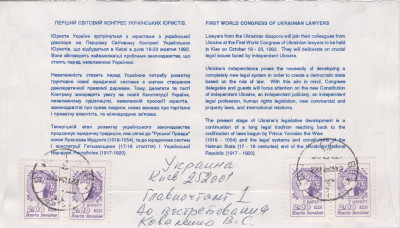 ПЕРШИЙ СВІТОВИЙ КОНГРЕС УКРАЇНСЬКИХ ЮРИСТІВ.
Юристи України зустрінуться з юристами з української
діаспори на Першому Світовому Конгресі Українських
Юристів, що відбудеться в Києві з 18-23 жовтня 1992.
Вони обговорять найважливіші проблеми законодавства, що
стоять перед незалежною Україною.
Незалежність ставить перед Україною потребу розвитку
практично нової юридичної системи з метою створення
демократичної правової держави. Тому, делегати та гості
Конгресу зосередять увагу на новій Конституції України,
незалежному судівництві, незалежній юридичній професії,
законодавстві про права людини, новим законам про торгівлю
і приватну власність, та міжнародним зв'язкам.
Теперішній етап розвитку українського законодавства
продовжує юридичну традицію, яка сягає до "Руської Правди"
князя Ярослава Мудрого (1019-1054), та до юридичних систем
і конституції Гетьманщини (17-18 століття) і Української
Народньої Республіки (1917-1920).
FIRST WORLD CONGRESS OF UKRAINIAN LAWYERS.
Lawyers from the Ukrainian diaspora will join their colleagues from
Ukraine at the First World Congress of Ukrainian lawyers to be held
in Kiev on October 18 - 23, 1992. They will deliberate on crucial
legal issues faced by independent Ukraine.
Ukraine's independence poses the necessity of developing a
completely new legal system in order to create a democratic state
based on the rule of law. With this aim in mind, Congress
delegates and guests will focus attention on the new Constitution
of independent Ukraine, an independent judiciary, an independent
legal profession, human rights legislation, new commercial and
property laws, and international relations.
The present stage of Ukraine's legislative development is a
continuation of a long legal tradition reaching back to the
codification of laws begun by Prince Yaroslav the Wise
(1019 - 1054) and the legal systems and constitutions of the
Hetman State (17 - 18 centuries) and of the Ukrainian National
Republic (1917 - 1920).
Украина
Киев 252001
Главпочтамт 1
До востребования
Коваленко В. С.
2.00
Пошта України
2.00
Пошта України
2.00
Пошта України
2.00
Пошта України